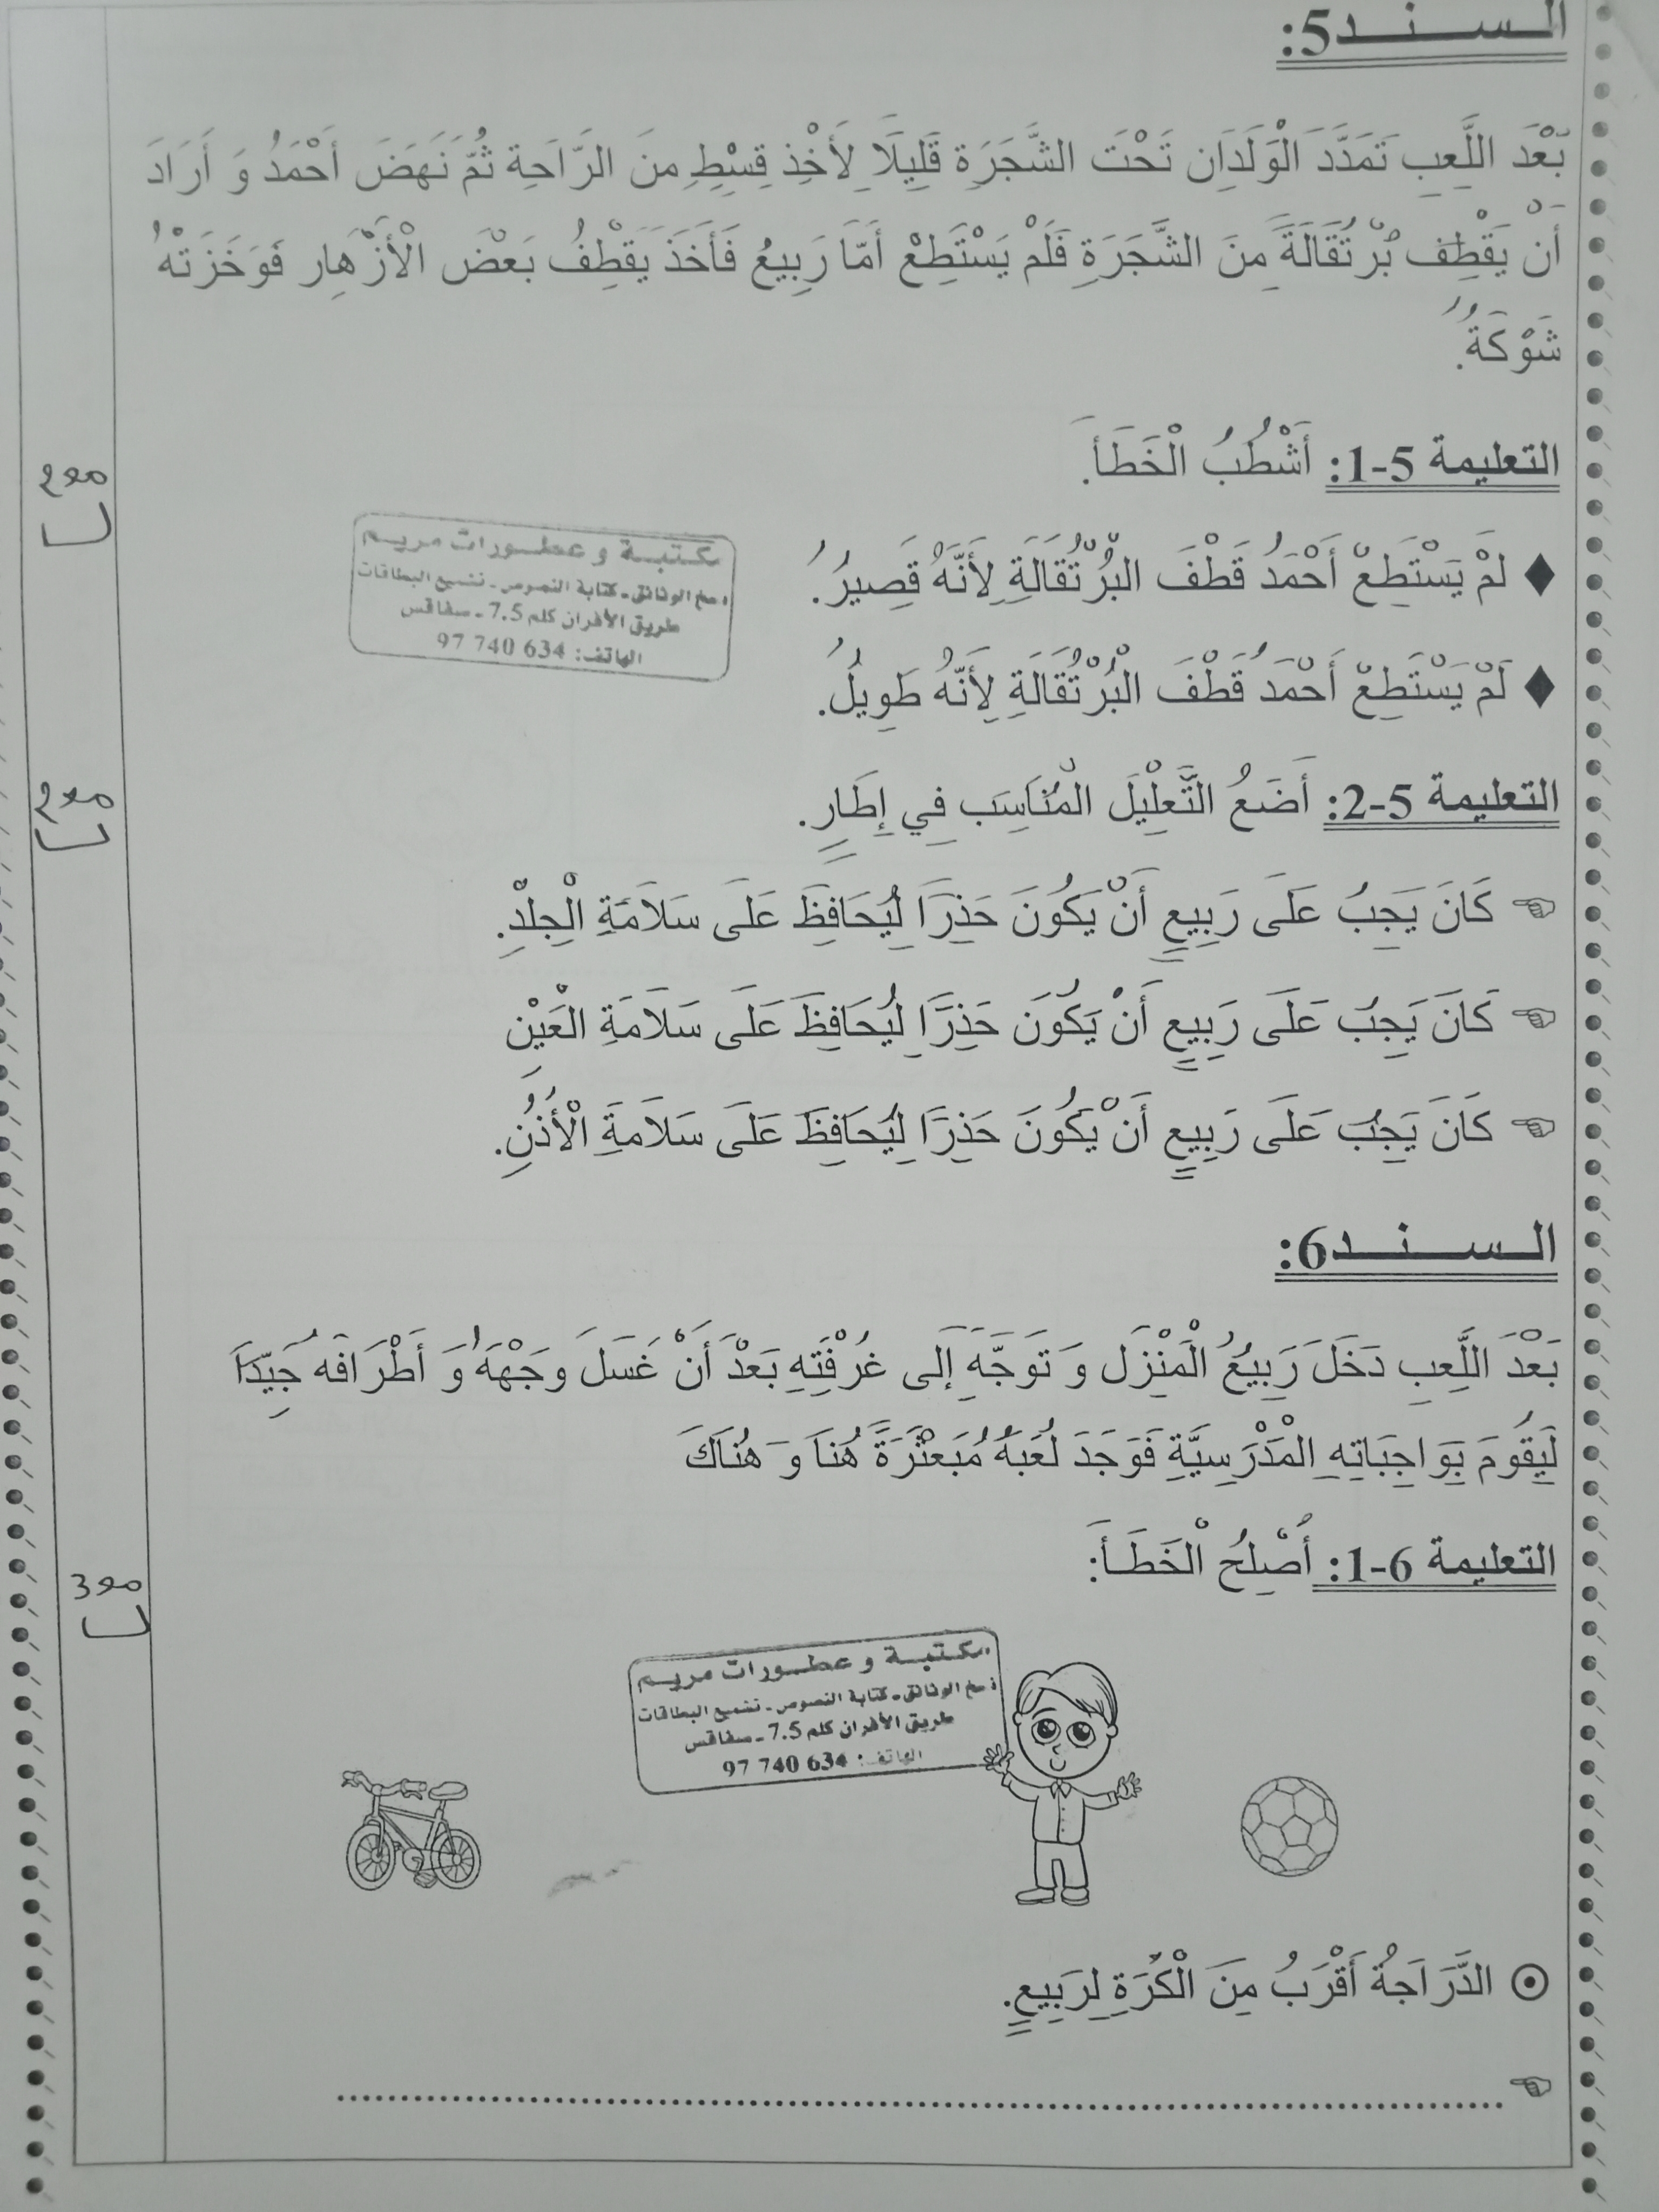 السند5:
بَعْدَ اللَّعِبِ تَمَدَّدَ الْوَلَدَانِ تَحْتَ الشَّجَرَةِ قَلِيلًا لِأَخْذِ قِسْطٍ مِنَ الرَّاحَةِ ثُمَّ نَهَضَ أَحْمَدُ وَ أَرَادَ
أَنْ يَقْطِفَ بُرْتُقَالَةً مِنَ الشَّجَرَةِ فَلَمْ يَسْتَطِعْ أَمَّا رَبِيعُ فَأَخَذَ يَقْطِفُ بَعْضَ الْأَزْهَارِ فَوَخَزَتْهُ
شَوْكَةٌ.
التعليمة 5-1: أَشْطُبُ الْخَطَأَ.
2 مع
لَمْ يَسْتَطِعْ أَحْمَدُ قَطْفَ الْبُرْتُقَالَةِ لِأَنَّهُ قَصِيرٌ.
مكتبة و عطورات مريم
نسخ الوثائق - كتابة النصوص - تشميع البطاقات
طريق الأفران كلم 7.5 - صفاقس
الهاتف: 634 740 97
لَمْ يَسْتَطِعْ أَحْمَدُ قَطْفَ الْبُرْتُقَالَةِ لِأَنَّهُ طَوِيلٌ.
التعليمة 5-2: أَضَعُ التَّعْلِيلَ الْمُنَاسِبَ فِي إِطَارٍ.
2 مع
كَانَ يَجِبُ عَلَى رَبِيعٍ أَنْ يَكُونَ حَذِرًا لِيُحَافِظَ عَلَى سَلَامَةِ الْجِلْدِ.
كَانَ يَجِبُ عَلَى رَبِيعٍ أَنْ يَكُونَ حَذِرًا لِيُحَافِظَ عَلَى سَلَامَةِ الْعَيْنِ
كَانَ يَجِبُ عَلَى رَبِيعٍ أَنْ يَكُونَ حَذِرًا لِيُحَافِظَ عَلَى سَلَامَةِ الْأُذُنِ.
السند6:
بَعْدَ اللَّعِبِ دَخَلَ رَبِيعُ الْمَنْزِلَ وَ تَوَجَّهَ إِلَى غُرْفَتِهِ بَعْدَ أَنْ غَسَلَ وَجْهَهُ وَ أَطْرَافَهُ جَيِّدًا
لِيَقُومَ بِوَاجِبَاتِهِ الْمَدْرَسِيَّةِ فَوَجَدَ لُعَبَهُ مُبَعْثَرَةً هُنَا وَ هُنَاكَ
التعليمة 6-1: أُصْلِحُ الْخَطَأَ:
3 مع
مكتبة و عطورات مريم
نسخ الوثائق - كتابة النصوص - تشميع البطاقات
طريق الأفران كلم 7.5 - صفاقس
الهاتف: 634 740 97
الدَّرَاجَةُ أَقْرَبُ مِنَ الْكُرَةِ لِرَبِيعٍ.